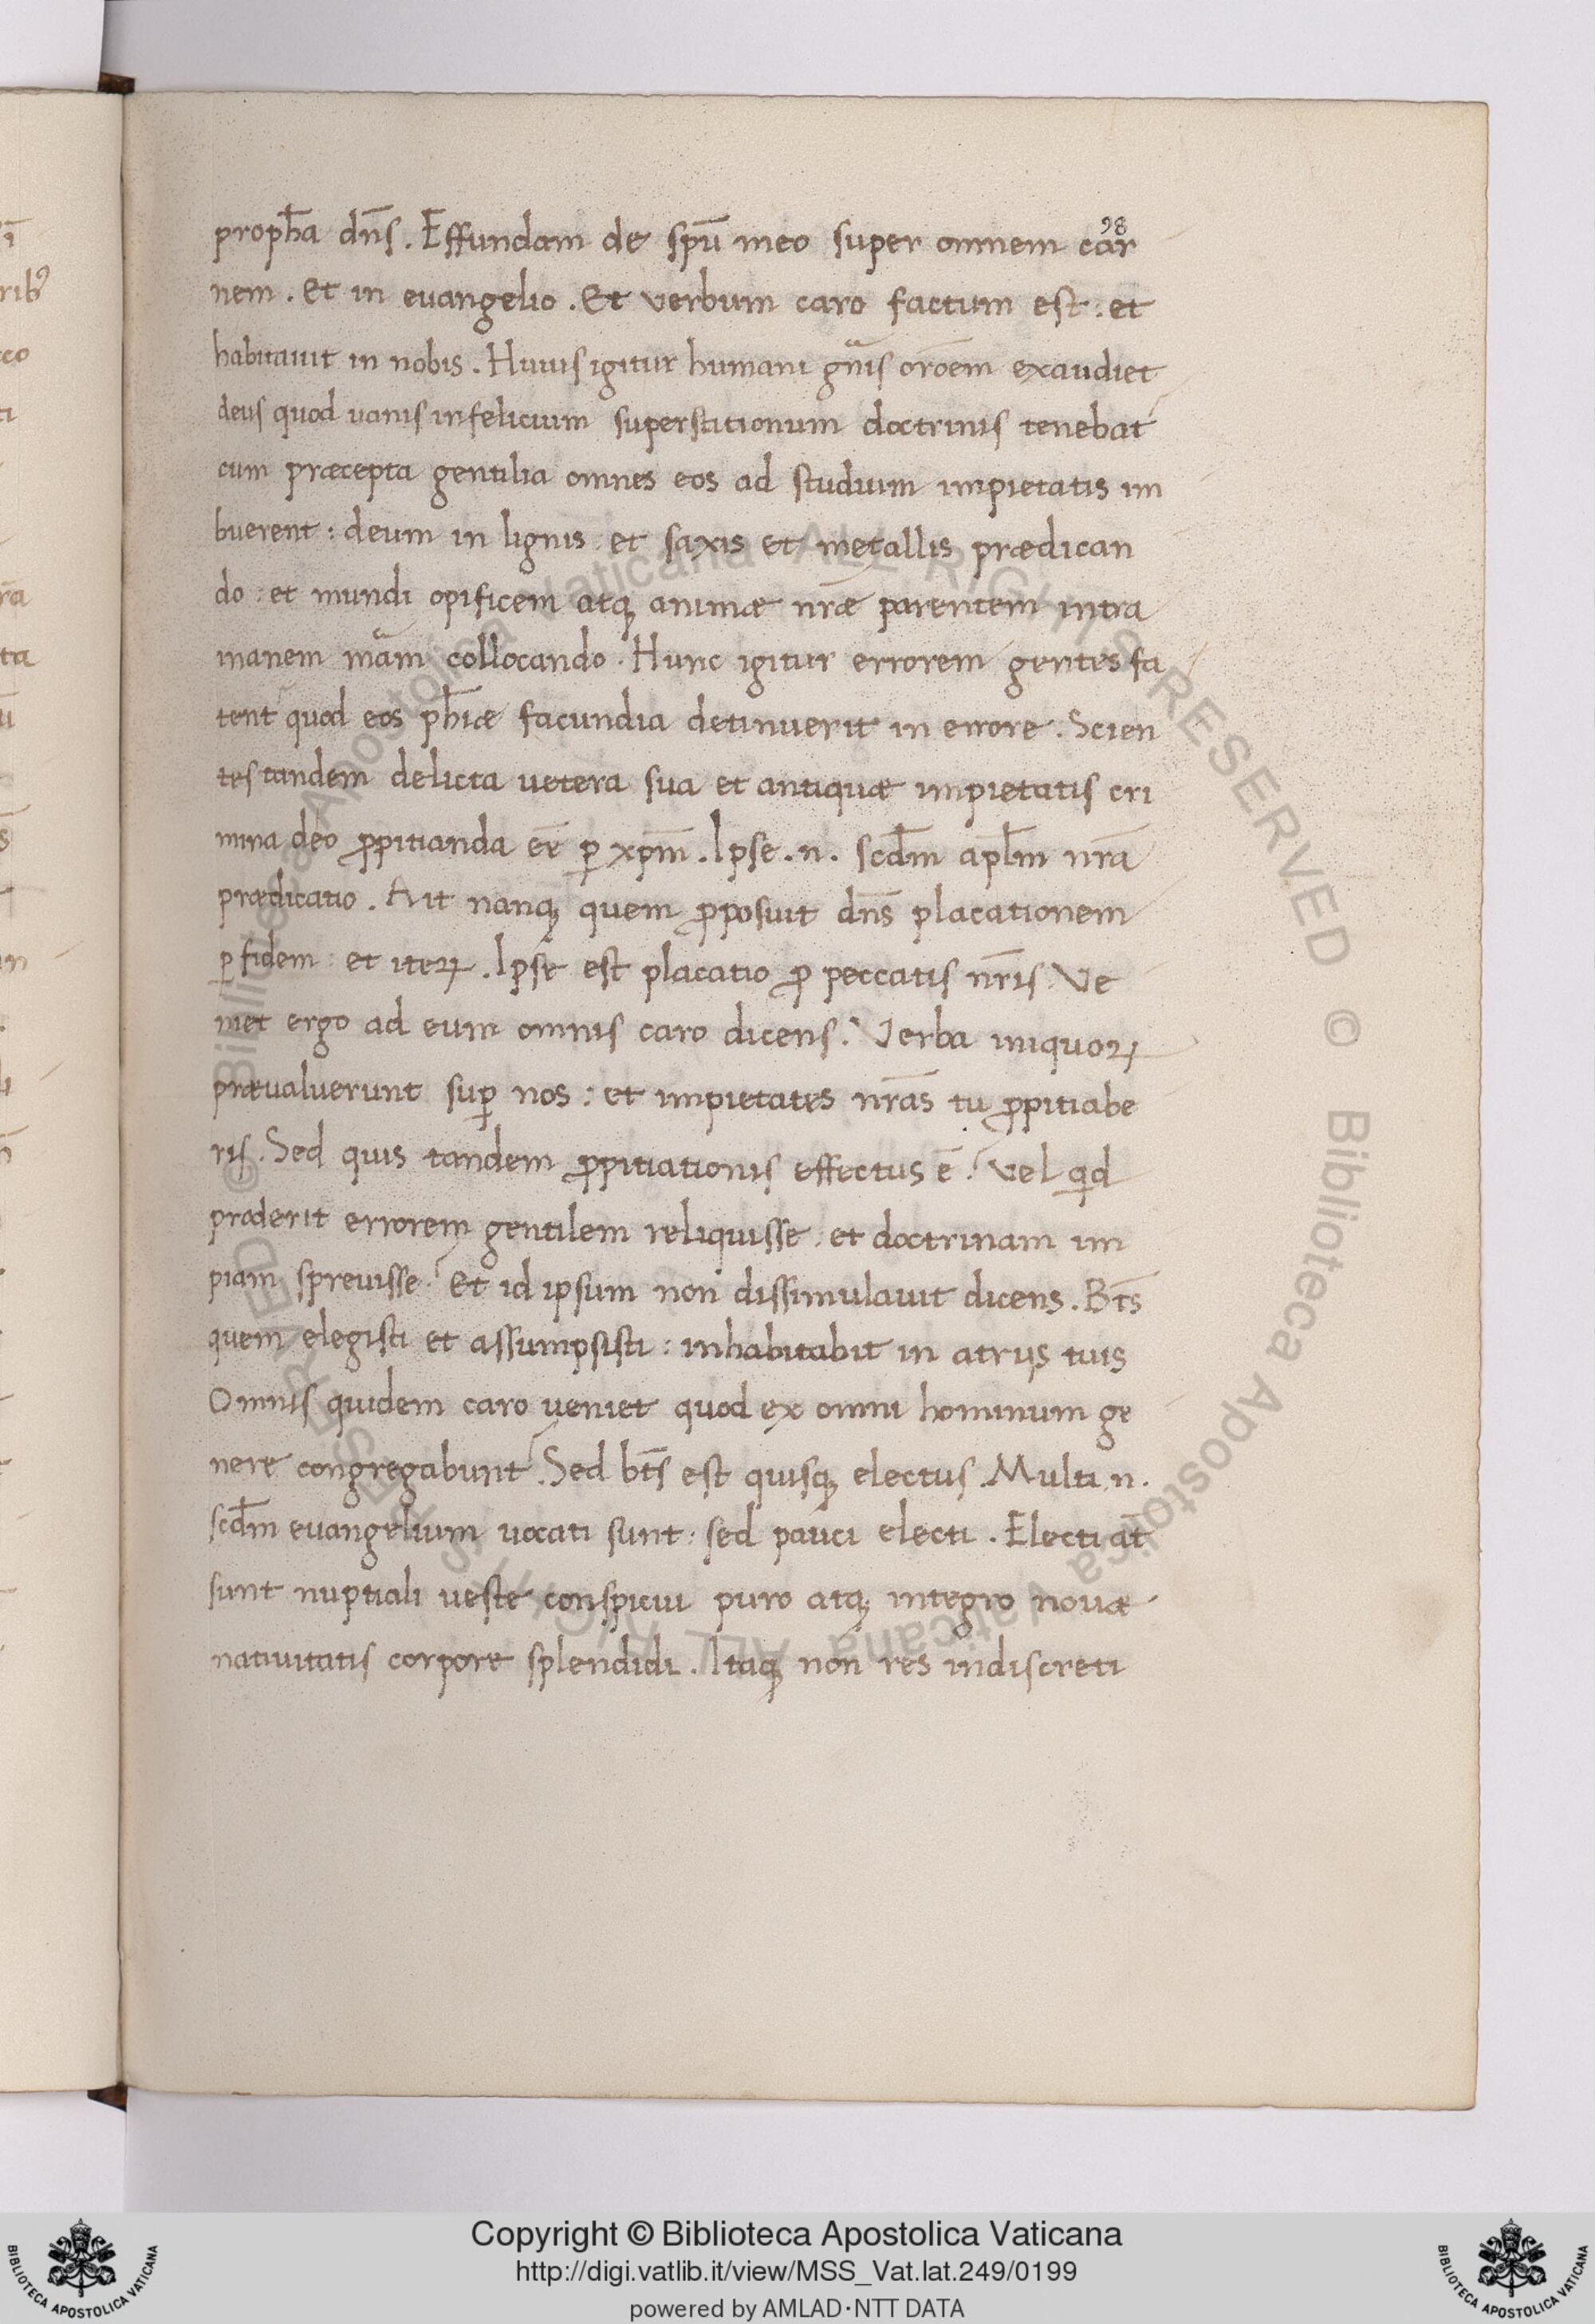 98
proph̄a dn̄s. Effundam de spū meo super omnem car
nem. et in euangelio. Et verbum caro factum est: et
habitauit in nobis. Huius igitur humani gn̄is orōem exaudiet
deus quod uanis infelicium superstitionum doctrinis tenebat᷑
cum præcepta gentilia omnes eos ad studium impietatis im
buerent: deum in lignis et saxis et metallis prædican
do: et mundi opificem atq; animæ nr̄æ parentem intra
manem mām collocando. Hunc igitur errorem gentes fa
tent᷑ quod eos ph̄icæ facundia detinuerit in errore. Scien
tes tandem delicta uetera sua et antiquæ impietatis cri
mina deo ꝓpitianda eē ꝑ xpm̄. Ipse .n. scd̄m apl̄m nr̄a
prædicatio. Ait nanq; quem ꝓposuit dn̄s placationem
ꝑ fidem: et iteꝝ. Ipse est placatio ꝓ peccatis nr̄is. Ve
niet ergo ad eum omnis caro dicens. Verba iniquoꝝ
præualuerunt suꝑ nos: et impietates nr̄as tu ꝓpitiabe
ris. Sed quis tandem ꝓpitiationis effectus ē? Vel qd
proderit errorem gentilem reliquisse: et doctrinam im
piam spreuisse? Et id ipsum non dissimulauit dicens. Bt̄s
quem elegisti et assumpsisti: inhabitabit in atrijs tuis
Omnis quidem caro ueniet quod ex omni hominum ge
nere congregabunt᷑. Sed bt̄s est quisq; electus. Multi .n.
scd̄m euangelium uocati sunt: sed pauci electi. Electi at̄
sunt nuptiali ueste conspicui puro atq; integro nouæ
natiuitatis corpore splendidi. Itaq; non res indiscreti
Copyright © Biblioteca Apostolica Vaticana
http://digi.vatlib.it/view/MSS_Vat.lat.249/0199
powered by AMLAD·NTT DATA